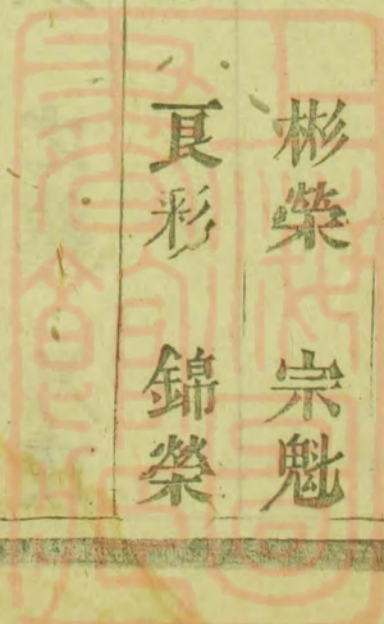 彬榮 宗魁
良彩 錦榮